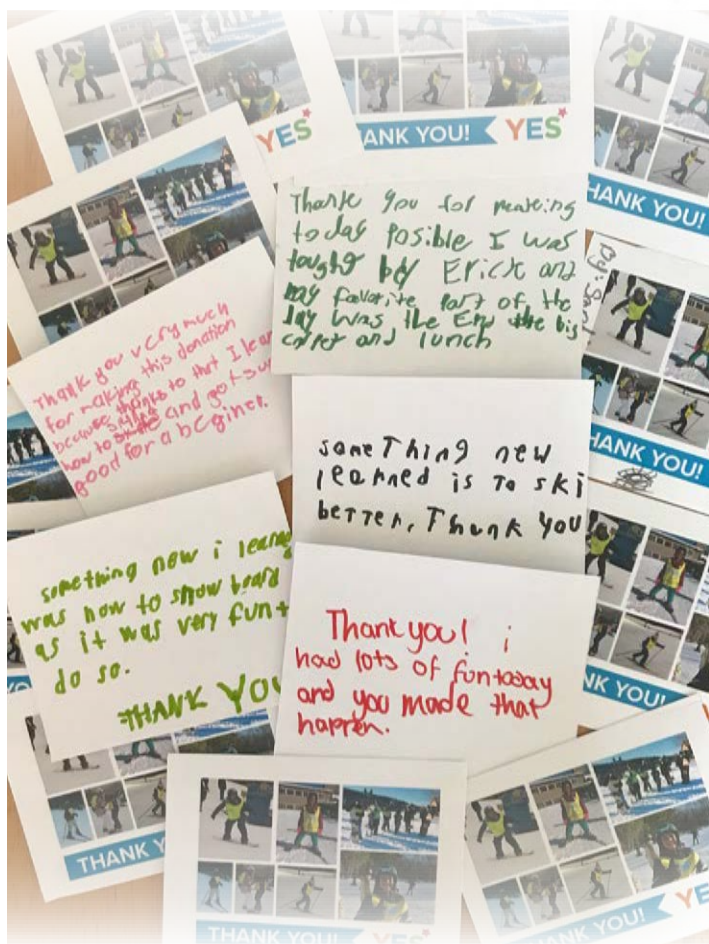 YES
THANK YOU!
YES
THANK YOU!
Thank you for making
today Posible I was
tought by Erick and
my favorite Part of the
day was the End the big
carpet and lunch
by:
Thank you very much
for making this donation
because thanks to that I lear
how to and got
good for a beginer.
THANK YOU!
someThing new
learned is To ski
beTTer, Thank You
something new i learned
was how to snow board
as it was very fun t
do so.
THANK YOU
Thank you! i
had lots of fun today
and you made that
happen.
NK YOU!
THANK Y
THANK YOU!
YES
YOU!
YE